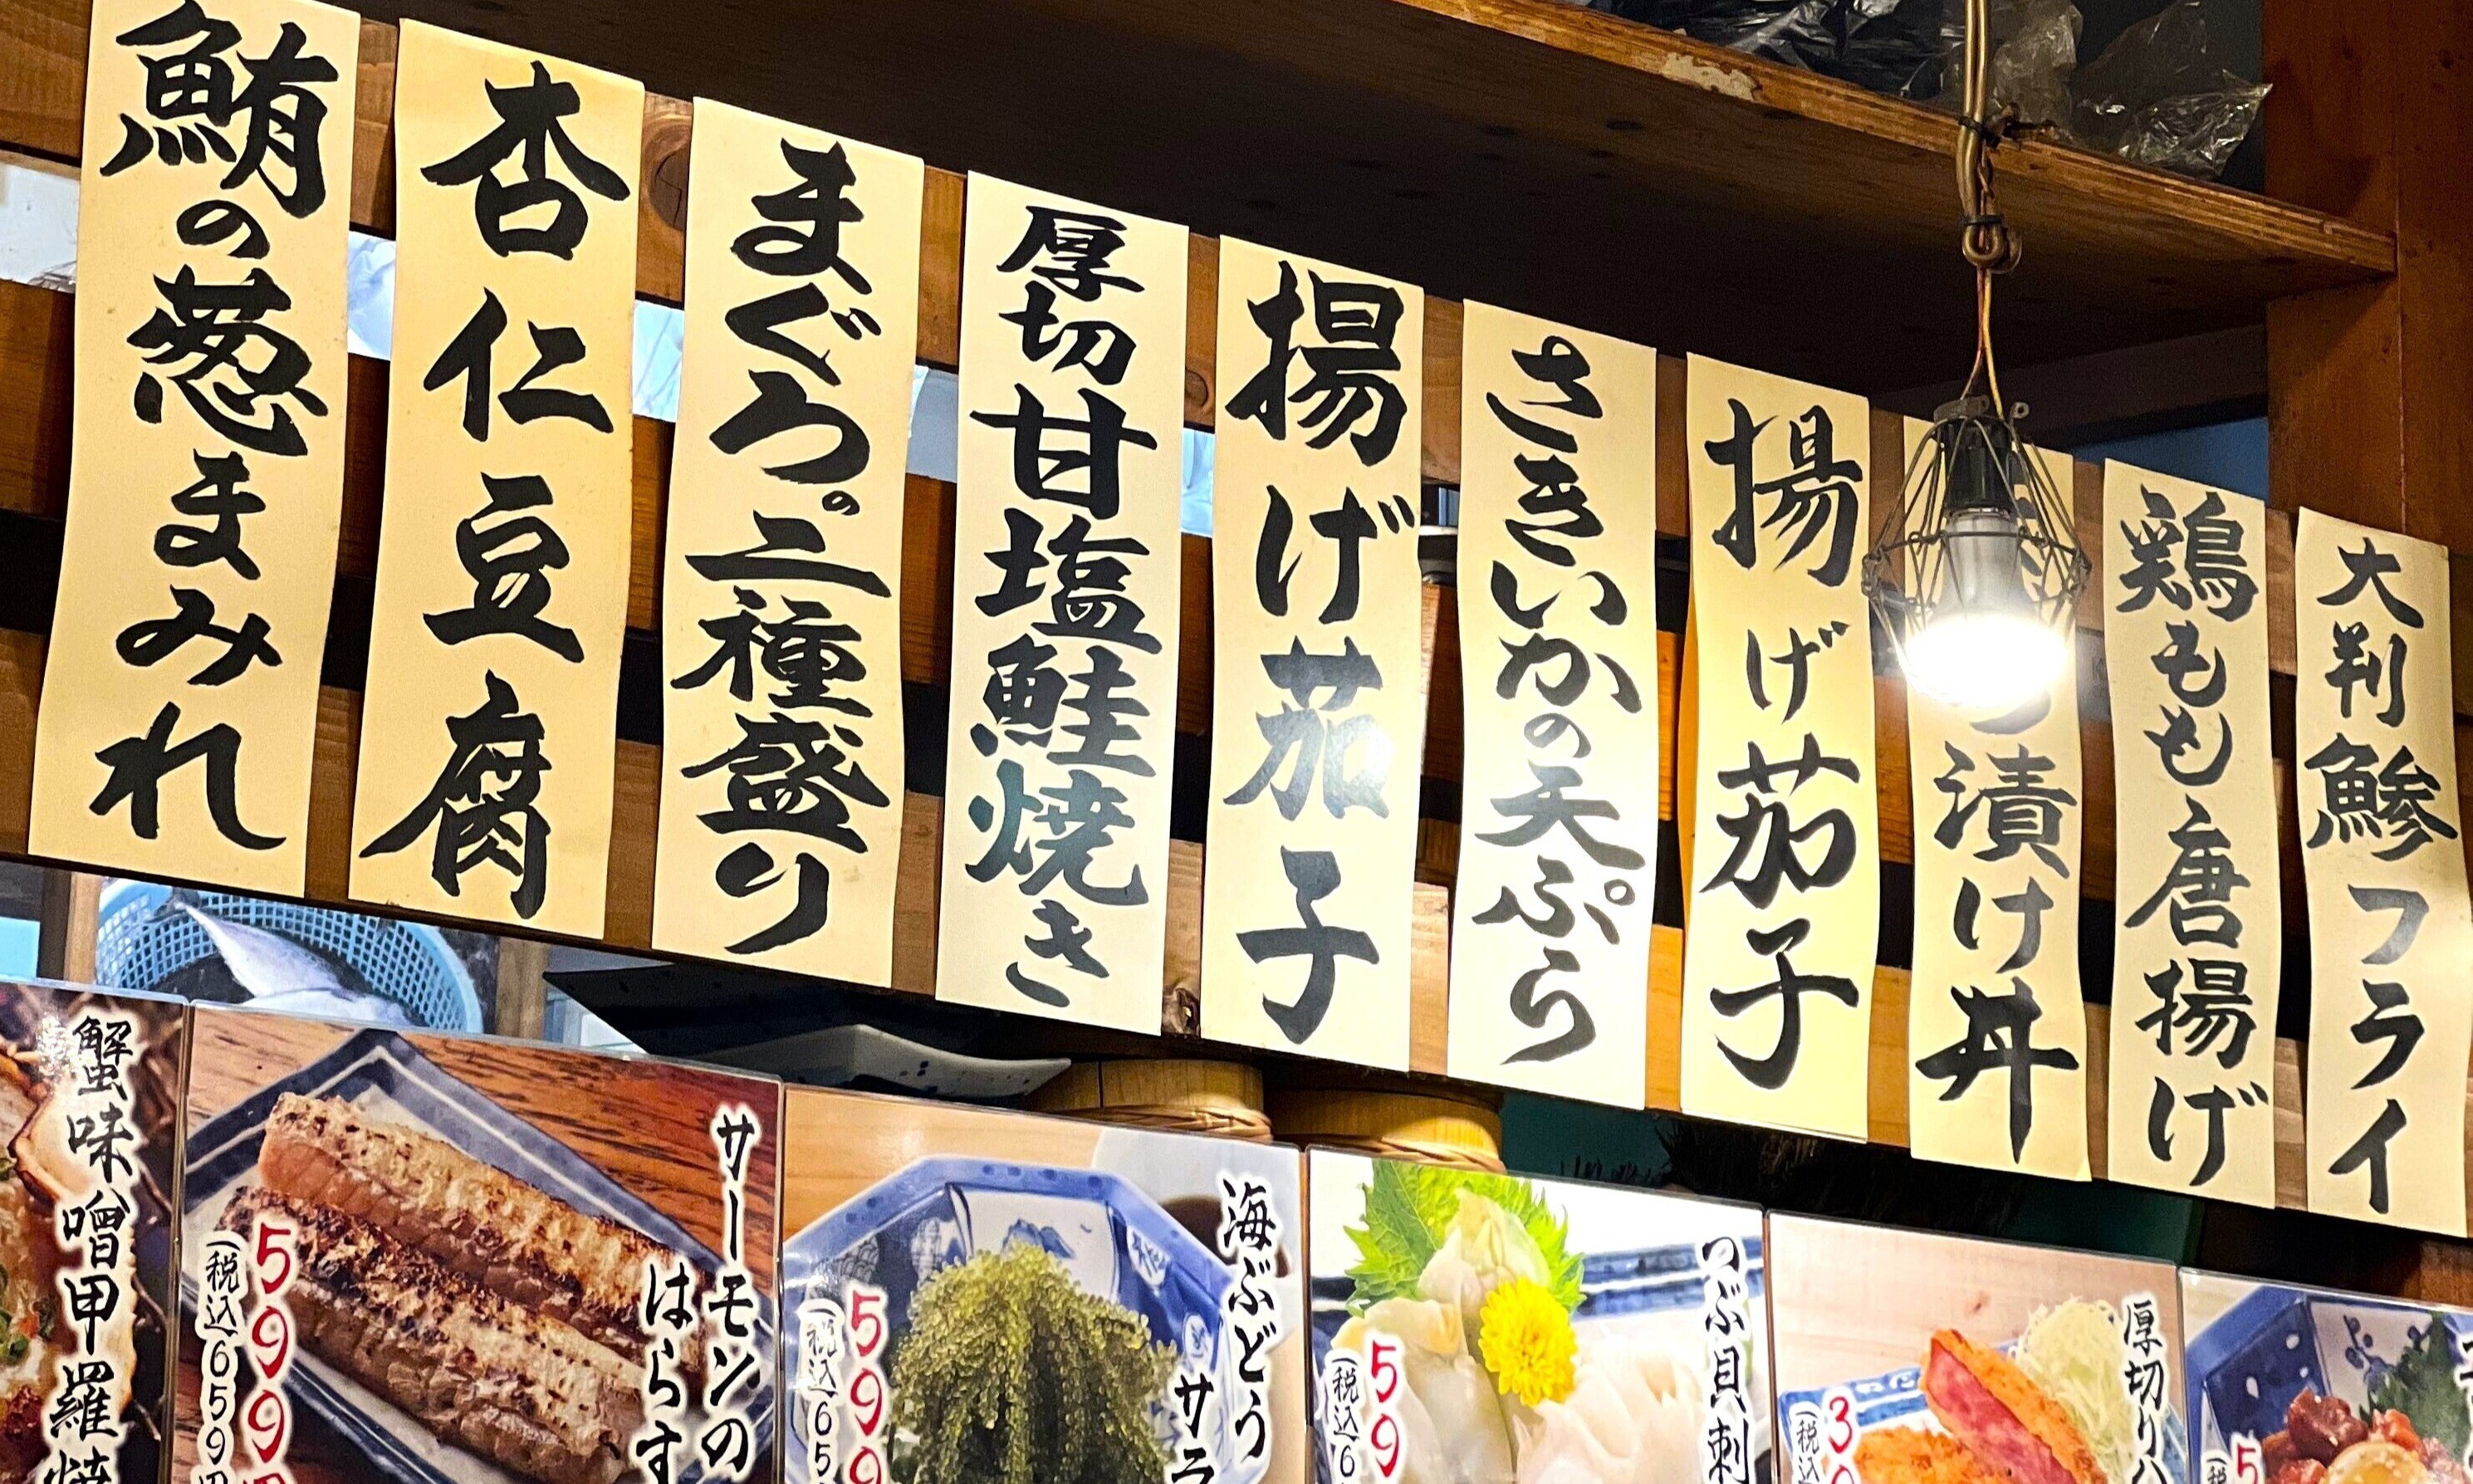 大判鯵フライ
鶏もも唐揚げ
漬け丼
揚げ茄子
さきいかの天ぷら
揚げ茄子
厚切甘塩鮭焼き
まぐろ。二種盛り
杏仁豆腐
鮪の葱まみれ
5
(税
厚切りハ
3
(税込
つぶ貝刺
59
(税込)6
海ぶどう
サラ
599
(税込)65
サーモンの
はらす
599円
(税込)659円
蟹味噌甲羅焼